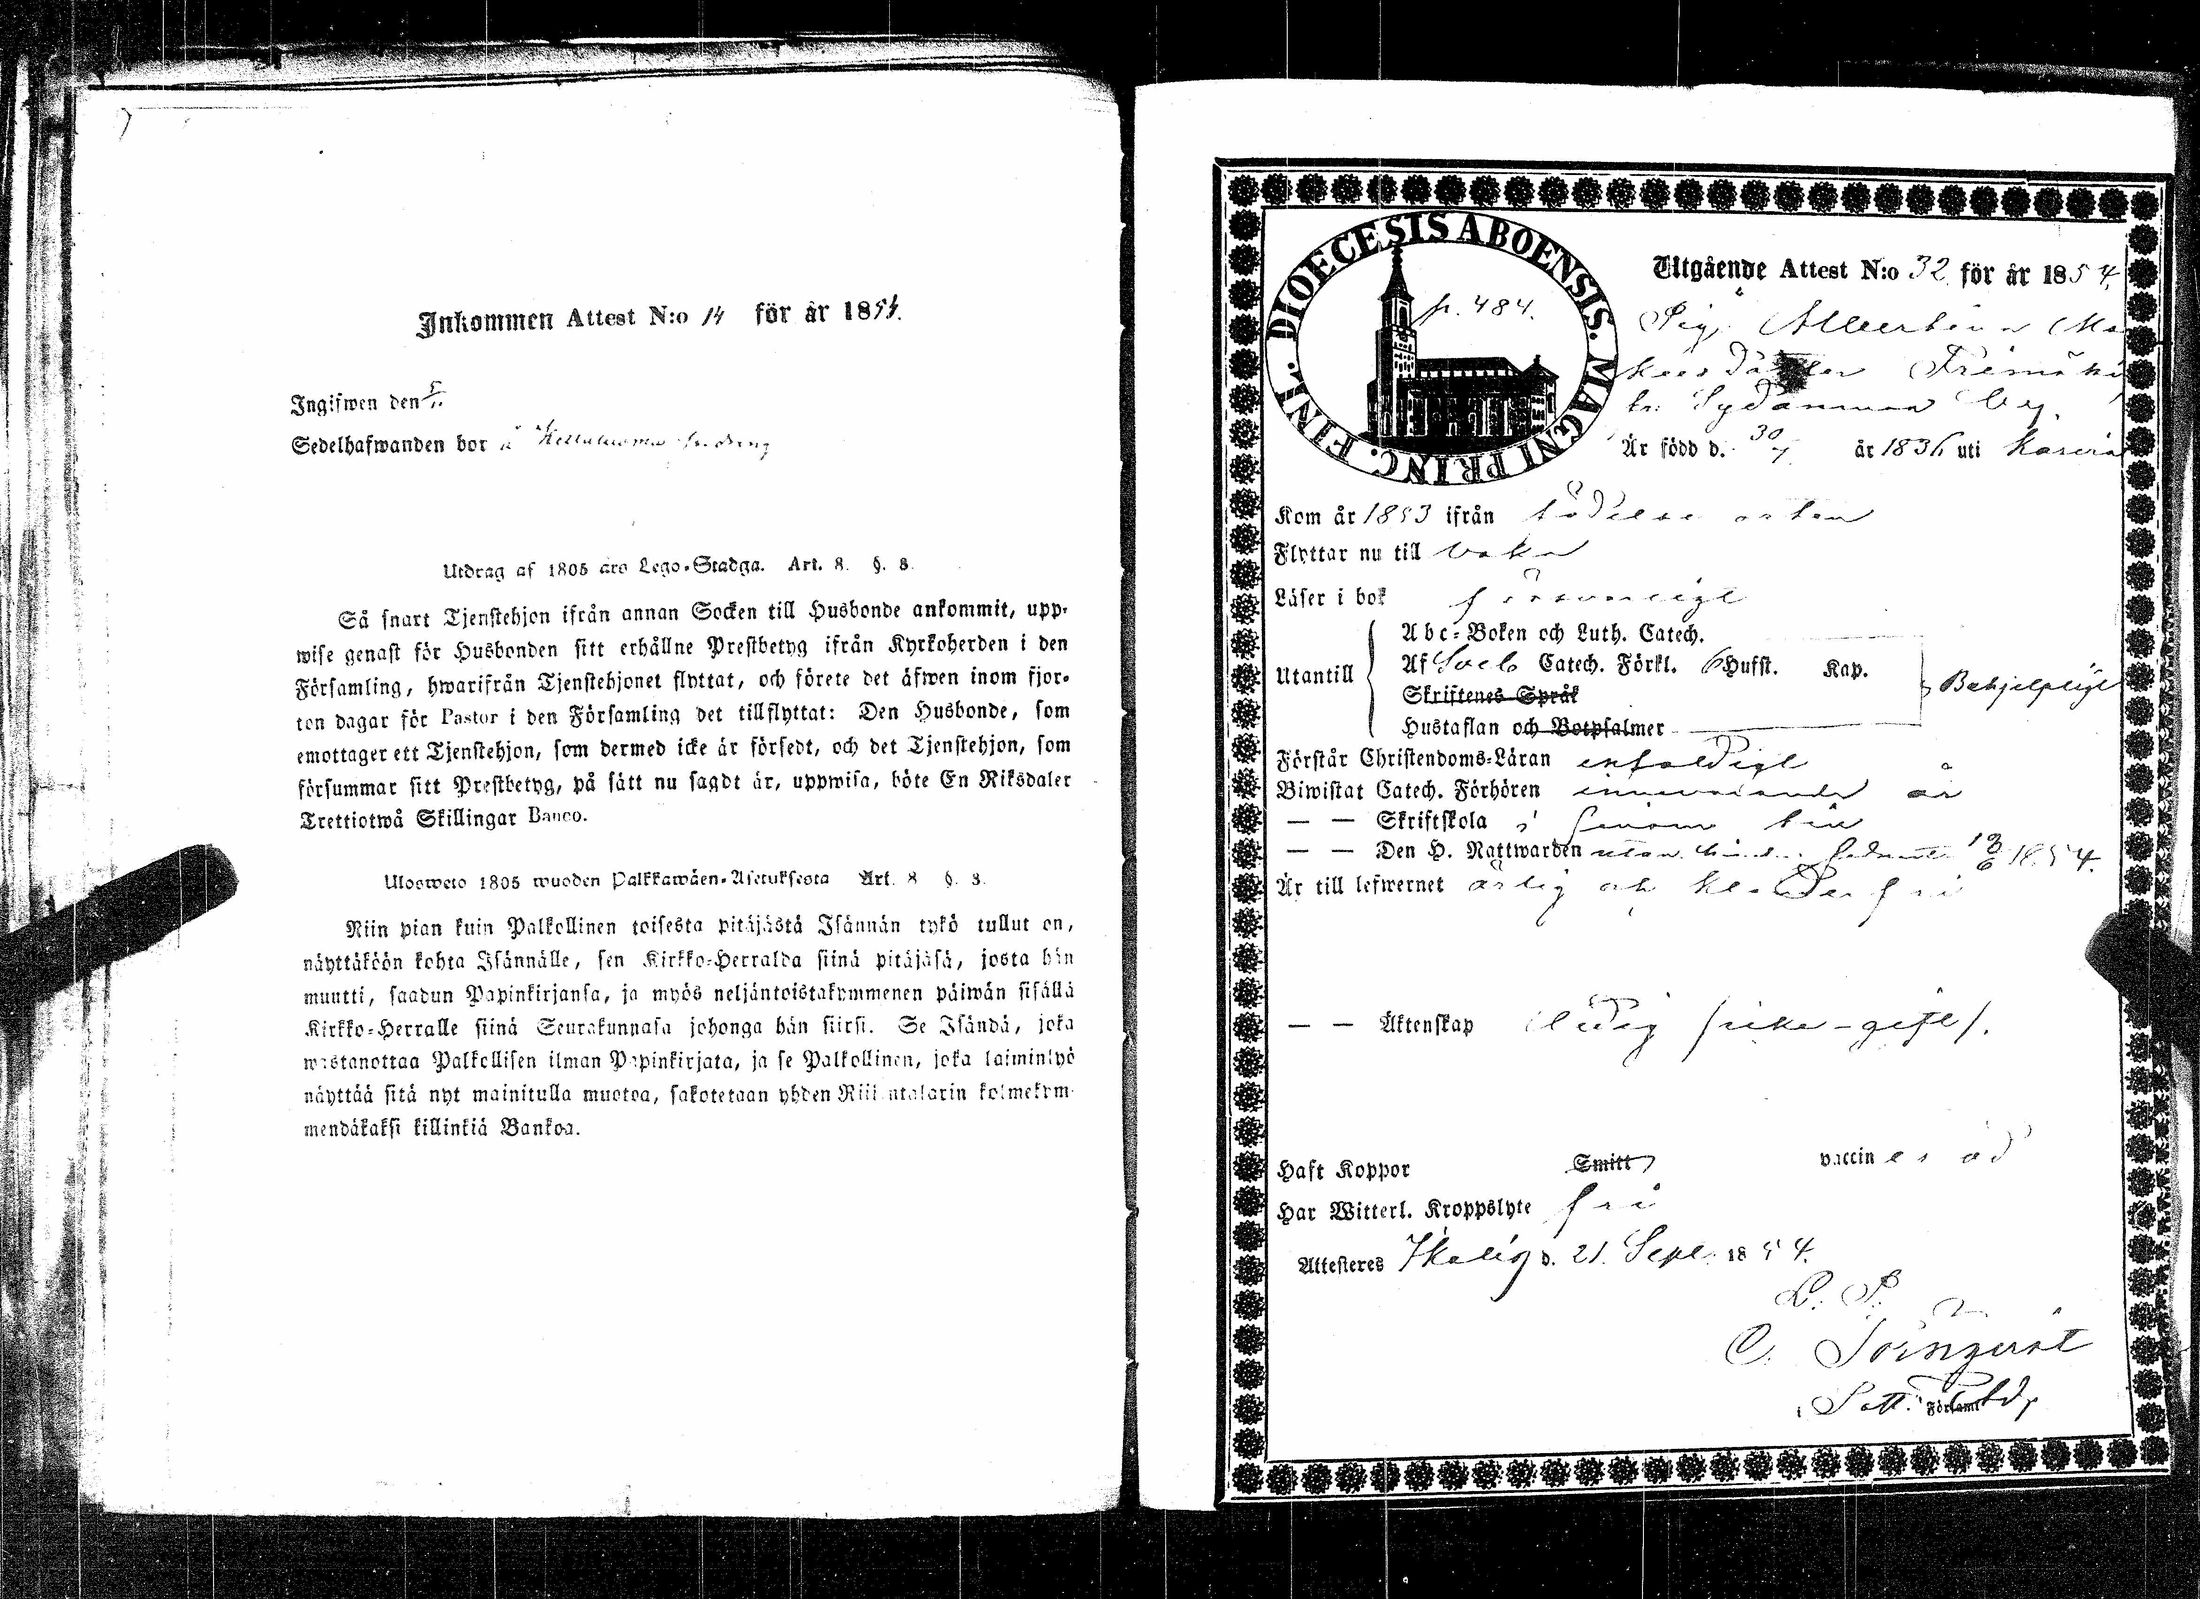 Inkommen Attest N:o 14 för år 1854.
Ingifwen den
Sedelhafwanden bor å
Utdrag af 1805 års Lego-Stadga. Art. 8. §. 8.
Så snart Tjenstehjon ifrån annan Socken till Husbonde ankommit, upp-
wise genast för Husbonden sitt erhållne Prestbetyg ifrån Kyrkoherden i den
Församling, hwarifrån Tjenstehjonet flyttat, och förete det äfwen inom fjor-
ton dagar för Pastor i den Församling det tillflyttat: Den Husbonde, som
emottager ett Tjenstehjon, som dermed icke är försedt, och det Tjenstehjon, som
försummar sitt Prestbetyg, på sätt nu sagdt är, uppwisa, böte En Riksdaler
Trettiotwå Skillingar Banco.
Ulosweto 1805 wuoden Palkkawäen-Asetuksesta Art. 8 §. 8.
Niin pian kuin Palkollinen toisesta pitäjästä Isännän tykö tullut on,
näyttäköön kohta Isännälle, sen Kirkko-Herralda siinä pitäjäsä, josta hän
muutti, saadun Papinkirjansa, ja myös neljäntoistakymmenen päiwän sisällä
Kirkko-Herralle siinä Seurakunnasa johonga hän siirsi. Se Isändä, joka
wastanottaa Palkollisen ilman Papinkirjata, ja se Palkollinen, joka laiminlyö
näyttää sitä nyt mainitulla muotoa, sakotetaan yhden Riiksntalarin kolmekym-
mendäkaksi killinkiä Bankoa.
DIOECESIS ABOENSIS. MAGNI PRINC. FINL.
p. 484.
Utgående Attest N:o 32 för år 1854.
Pig. Albertina
Är född d. 30/7 år 1836 uti
Kom år 1853 ifrån födelse orten
Flyttar nu till
Läser i bok försvarligt
Utantill
Abc-Boken och Luth. Catech.
Af Sveb Catech. Förkl. 6 Hufst. Kap.
Skriftenes Språk
Hustaflan och Botpsalmer
Behjelpligt
Förstår Christendoms-Läran enfaldigt
Biwistat Catech. Förhören innevarande år
— — Skriftskola
— — Den H. Nattwarden 13/6 1854.
Är till lefwernet ärlig och klanderfri
— — Äktenskap ledig (icke-gift).
Haft Koppor Smitt vaccinerad
Har Witterl. Kroppslyte fri
Attesteres Ikalis d. 21. Sept. 1854.
C. Törnqvist
i Församl